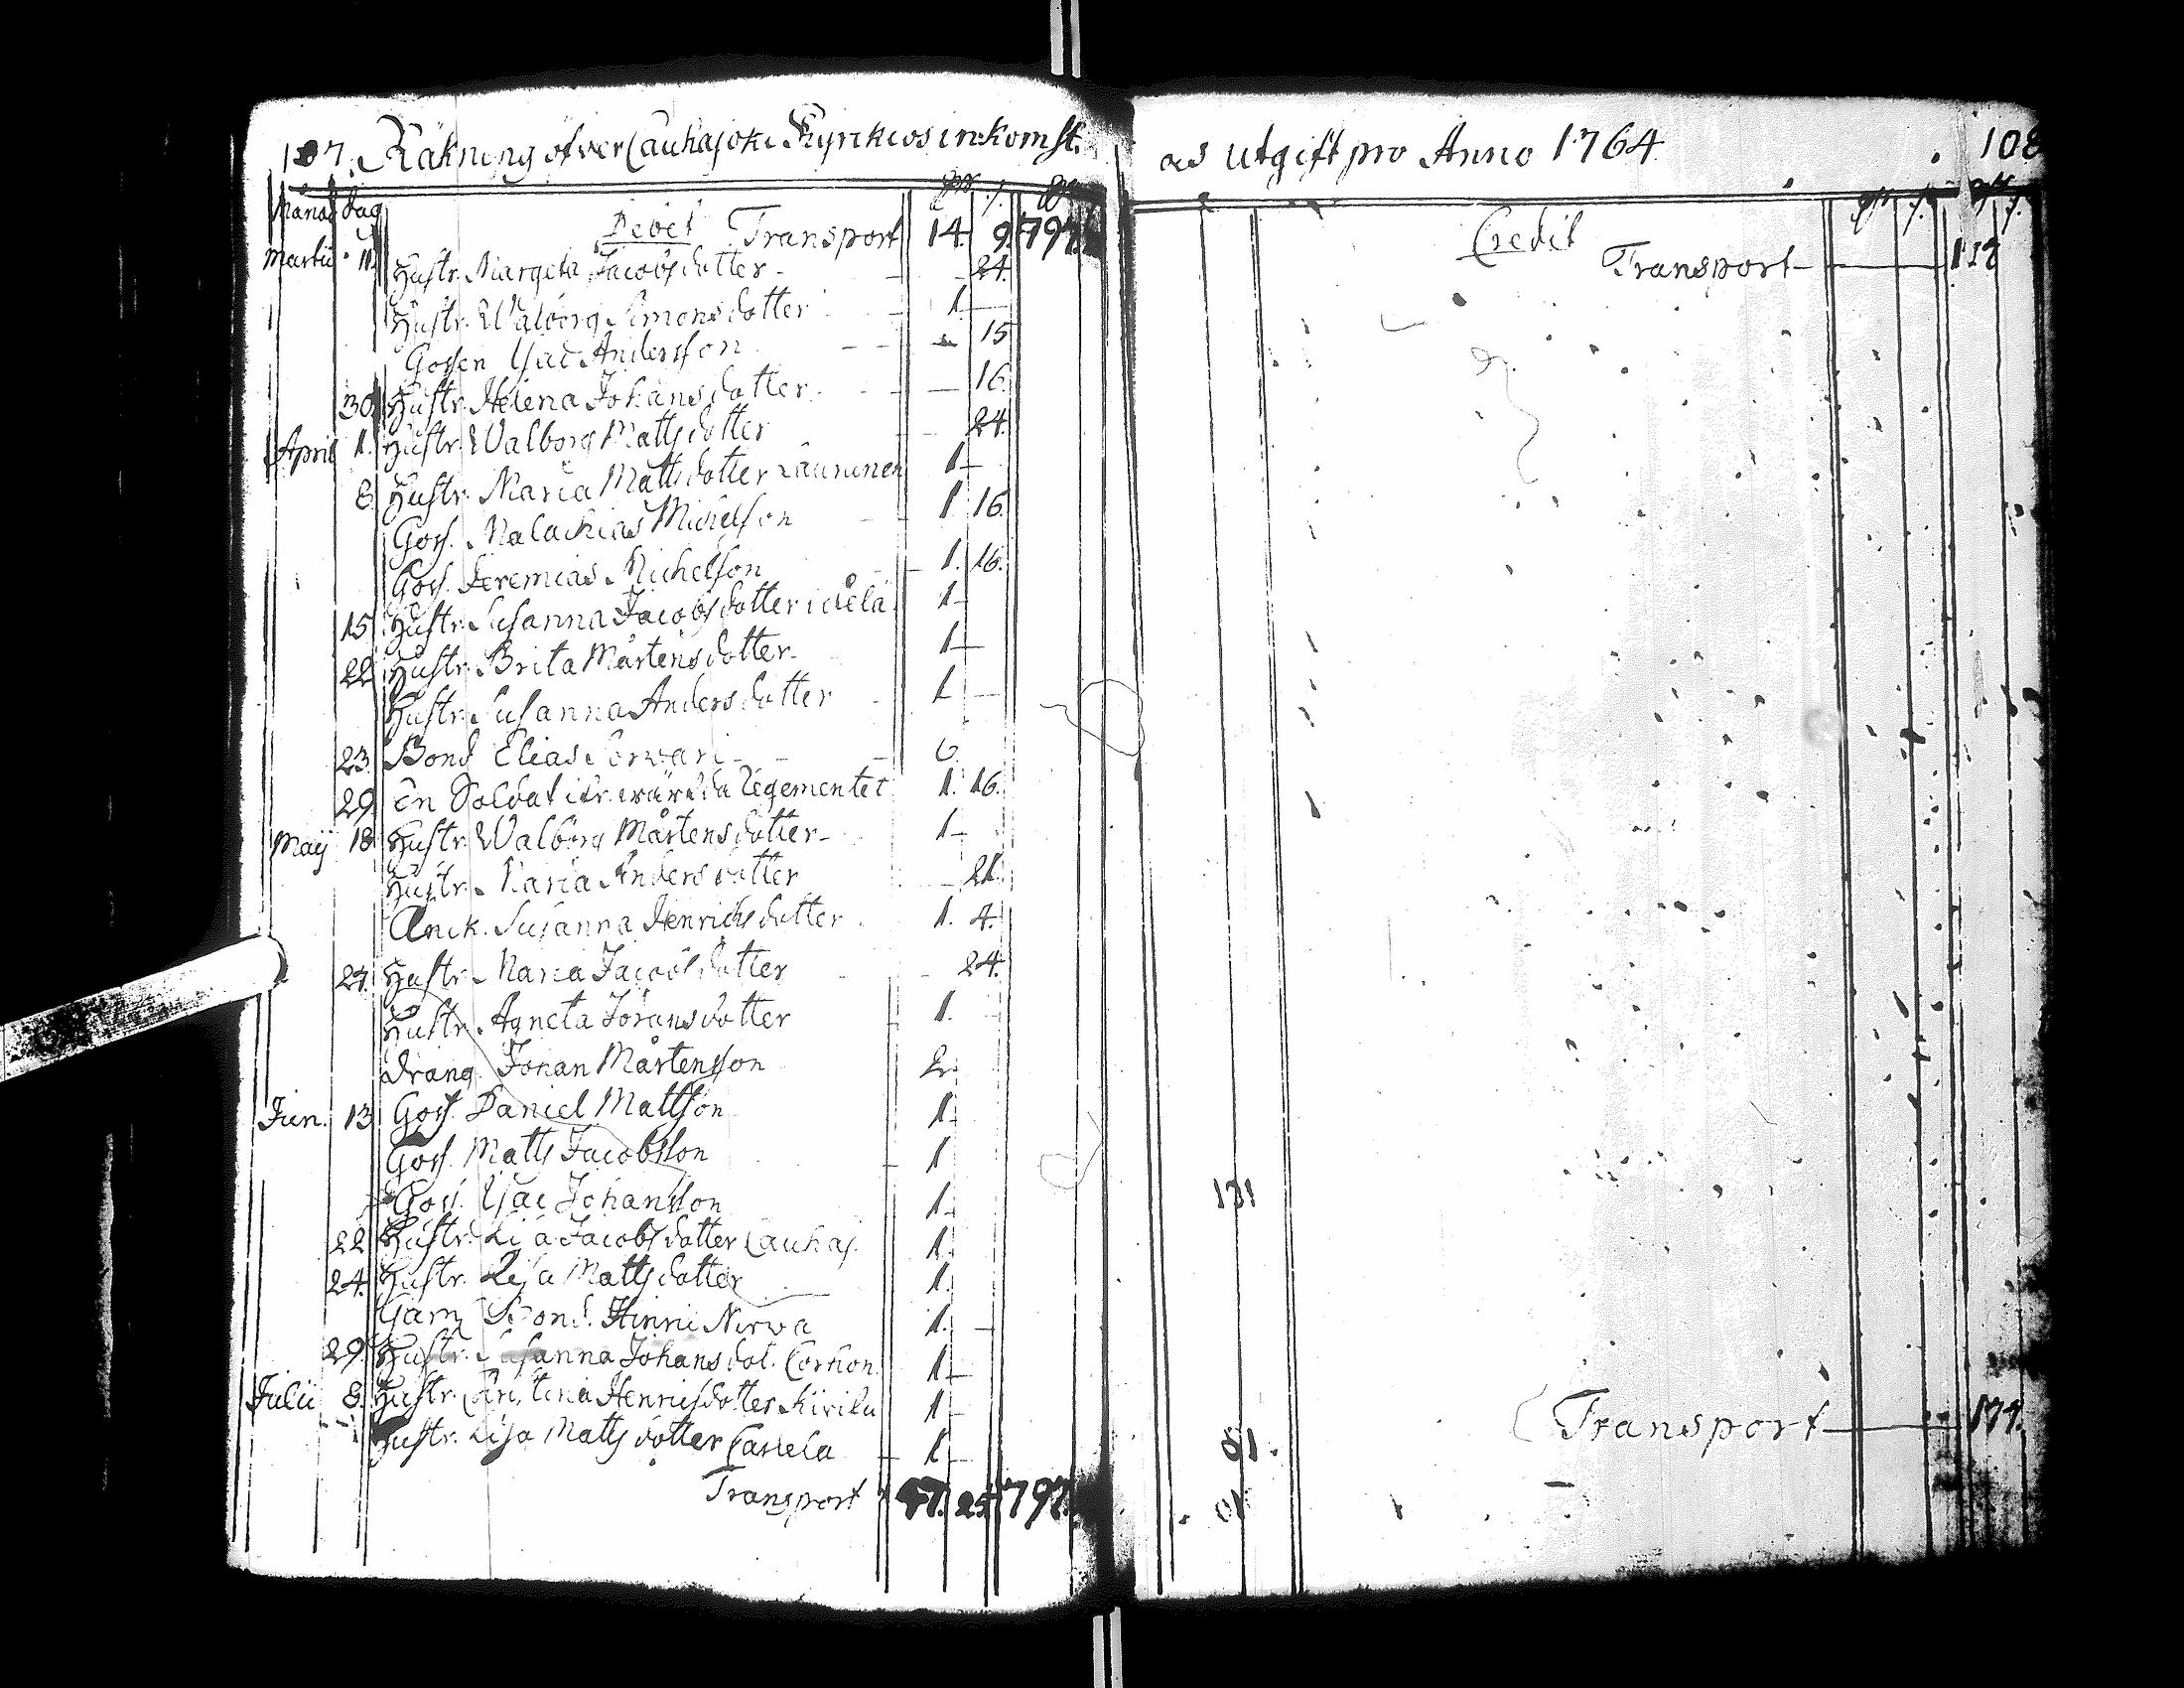 107. Räkning öfver Cauhajoki Kyrkios inkomst.
Månad dag
Debet Transport 14. 9. 797.
Martii 11. Hustr. Margeta Jacobsdotter - 24.
Hustr. Walborg Simonsdotter 1 -
Gossen Isac Andersson - 15
30. Hustr. Helena Johansdotter - 16.
April 1. Hustr. Walborg Mattsdotter - 24.
8. Hustr. Maria Mattsdotter Launinen 1 -
Goss. Malachias Michelson 1 16.
Goss. Jeremias Michelson 1. 16.
15. Hustr. Susanna Jacobsdotter 1 -
22. Hustr. Brita Mårtensdotter 1 -
Hustr. Susanna Andersdotter 1 -
23. Bond Elias 6.
29. En Soldat Regementet 1. 16.
Maij 18. Hustr. Walborg Mårtensdotter 1 -
Hustr. Maria Andersdotter - 21.
Enck. Susanna Henrichsdotter 1. 4.
27. Hustr. Maria Jacobsdotter - 24.
Hustr. Agneta Jöransdotter 1. -
Dräng Johan Mårtensson 2.
Jun. 13 Goss. Daniel Mattson 1 -
Goss. Matts Jacobsson 1
Goss. Isac Johansson 1 -
22 Hustr. Lisa Jacobsdotter Cauhaj. 1.
24. Hustr. Lisa Mattsdotter 1.
Gam. Bond. Hinric Nerva 1. -
29. Hustr. Susanna Johansdot. Corhon. 1 -
Julii 8. Hustr. Christina Henricsdotter Kivilu 1 -
Hustr. Lisa Mattsdotter 1 -
Transport 47. 25. 797.
as utgift pro Anno 1764. 108
Credit
Transport - 117
131
Transport - 177.